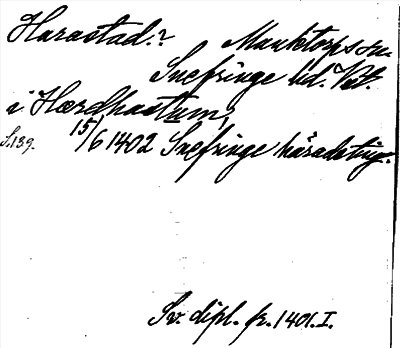 Harastad.? Munktorps sn.
Snefringe hd. Vstm.
i Hærdhastum,
S.139. 15/6 1402 Snefringe häradsting.
Sv. dipl. fr. 1401. I.